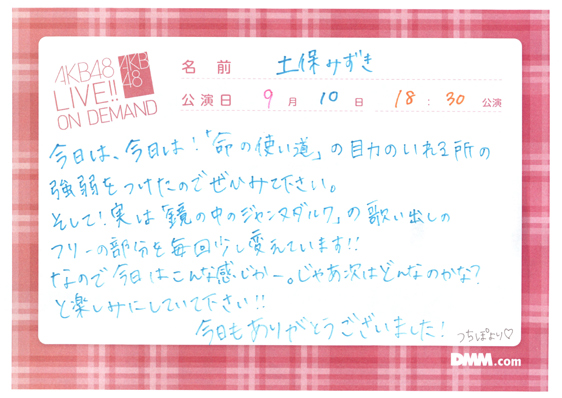 AKB48
LIVE!!
ON DEMAND
AKB
48
名前 土保みずき
公演日 9月10日 18:30公演
今日は、今日は!「命の使い道」の目力のいれる所の
強弱をつけたのでぜひみて下さい。
そして!実は「鏡の中のジャンヌダルク」の歌い出しの
フリーの部分を毎回少し変えています!!
なので今日はこんな感じかー。じゃあ次はどんなのかな?
と楽しみにしていて下さい!!
今日もありがとうございました!
つちぽより♡
DMM.com